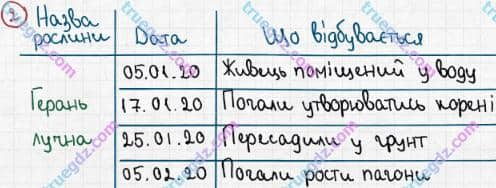 2 Назва рослини | Дата | Що відбувається
05.01.20 | Живець поміщений у воду
Герань | 17.01.20 | Почали утворюватись корені
лучна | 25.01.20 | Пересадили у грунт
05.02.20 | Почали рости пагони
truegdz.com